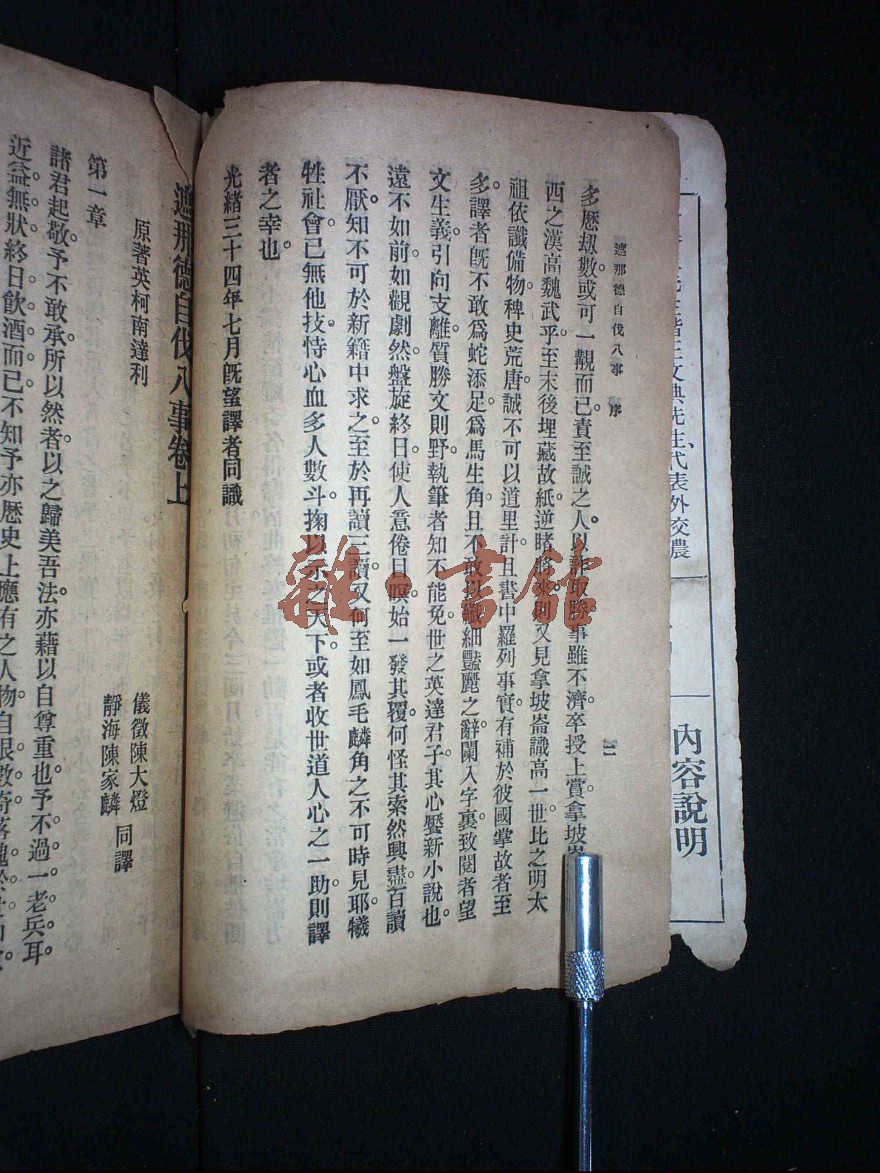 遮那德自伐八事 序 二
多歷刼數或可一覯而已責至誠之人以詐取勝事雖不濟卒授上賞拿坡
西之漢高魏武乎至末後埋藏故紙逆睹將來則又見拿坡崙識高一世比之明太
祖依讖備物稗史荒唐誠不可以道里計且書中羅列事實有補於彼國掌故者至
多譯者旣不敢爲蛇添足爲馬生角且不敢以纖細豔麗之辭闌入字裏致閱者望
文生義引向支離質勝文則野執筆者知不能免世之英達君子其心饜新小說也
遠不如前如觀劇然盤旋終日使人意倦日暝始一發其覆何怪其索然興盡百讀
不厭知不可於新籍中求之至於再讀三讀又何至如鳳毛麟角之不可時見耶犧
牲社會已無他技恃心血多人數斗掬以示之天下或者收世道人心之一助則譯
者之幸也
光緒三十四年七月旣望譯者同識
遮那德自伐八事卷上
原著英柯南達利
儀徵陳大燈
靜海陳家麟
同譯
第一章
諸君起敬予不敢承所以然者以之歸美吾法亦藉以自尊重也予不過一老兵耳
近益無狀終日飲酒而已不知予亦歷史上應有之人物自
文典先生代表外交農
內容說明
雜·書館